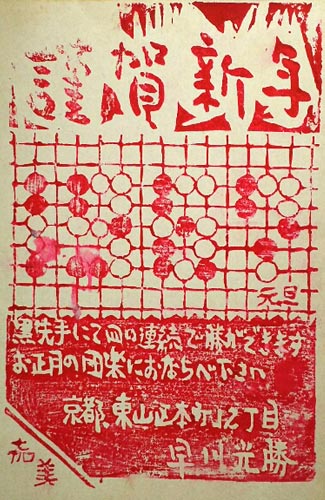 謹賀新年
元旦
黒先手にて四の連続で勝ができます
お正月の団楽におならべ下さい
京都、東山区本町 丁目
早川光勝